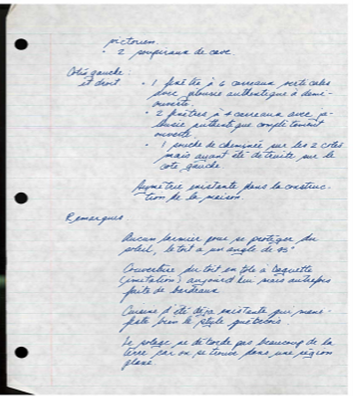 victorien.
• 2 soupiraux de cave.
Côtés gauche
et droit
• 1 fenêtre à 6 carreaux verticales
avec jalousie authentique à demi-
ouverte.
• 2 fenêtres à 4 carreaux avec ja-
lousie authentique complètement
ouverte.
• 1 souche de cheminée sur les 2 côtés
mais ayant été détruite sur le
côté gauche.
Symétrie existante dans la construc-
tion de la maison
Remarques
Aucun larmier pour se protéger du
soleil, le toit a un angle de 45°
Couverture du toit en tôle à baguette
(imitation) aujourd'hui mais autrefois
faite de bardeaux
Cuisine d'été déjà existante qui mani-
feste bien le style québécois.
Le solage se dégage pas beaucoup de la
terre car on se trouve dans une région
plane.